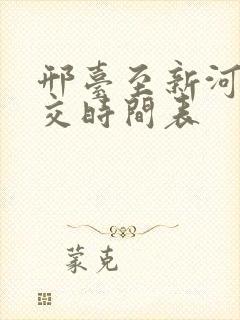 邢臺至新河
交時間表
蒙克